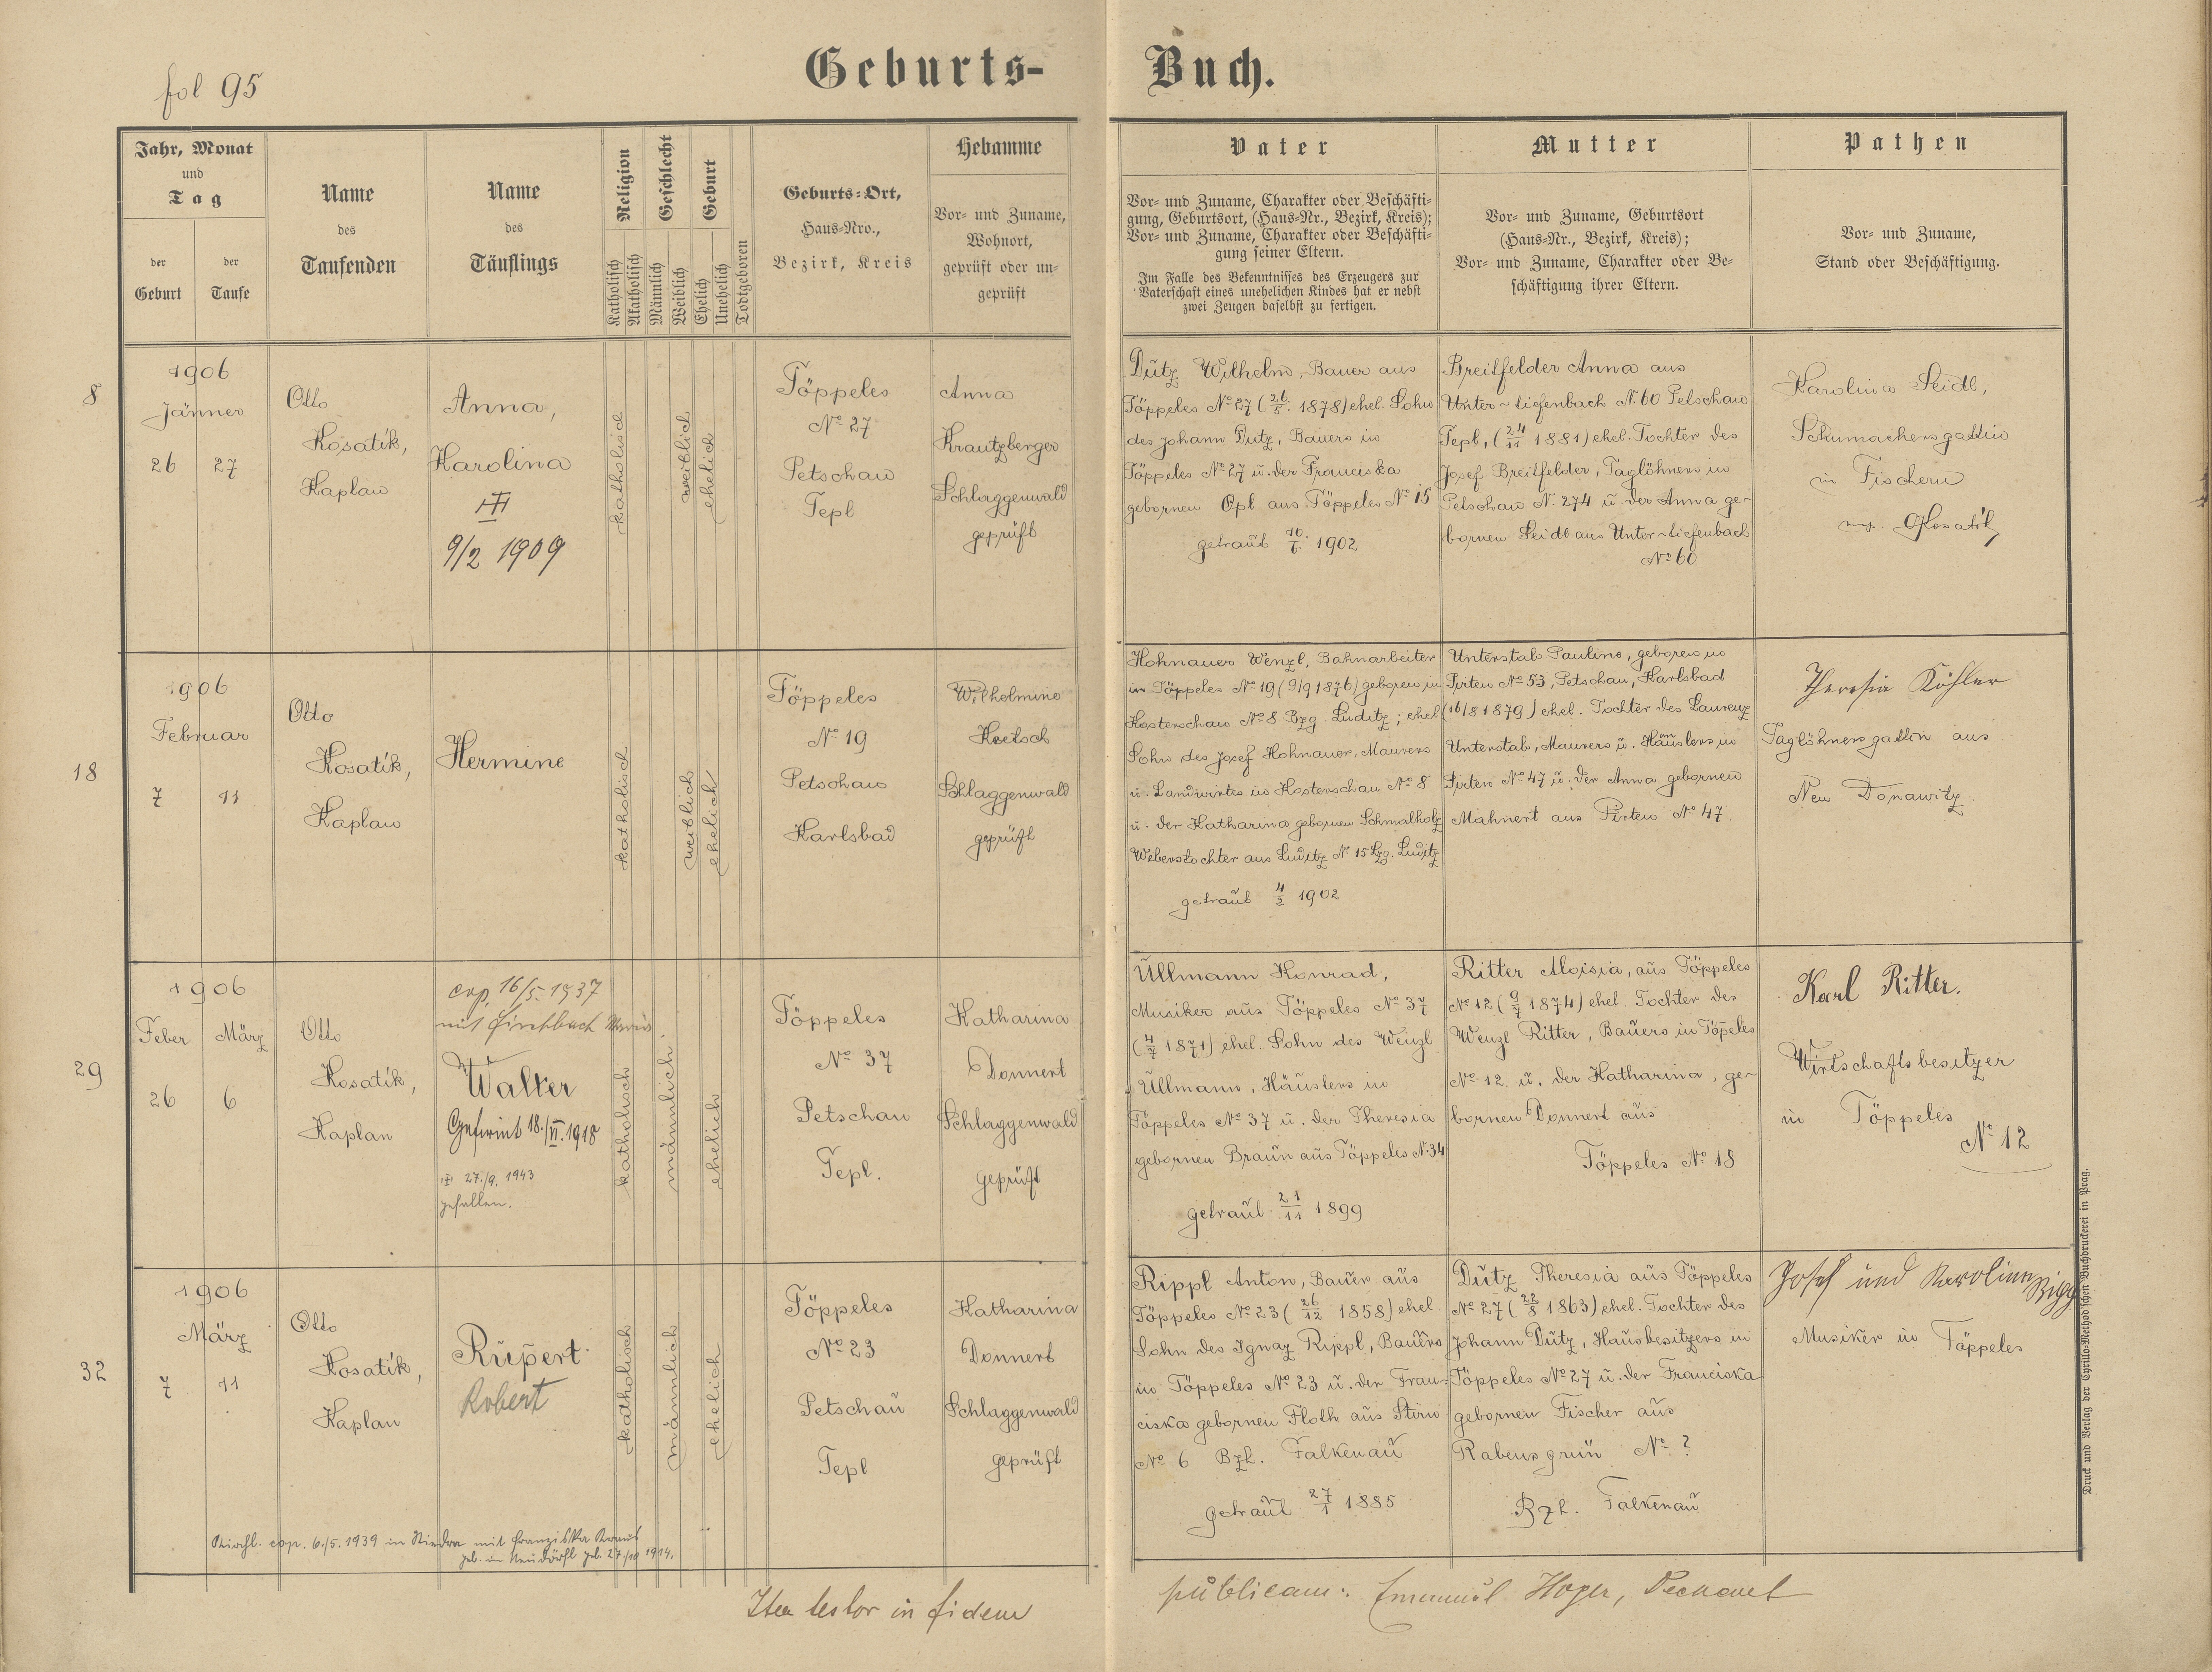 fol 95
Geburts- Buch.
Jahr, Monat
und
Tag
der
Geburt
der
Taufe
Name
des
Taufenden
Name
des
Täuflings
Religion
Katholisch
Akatholisch
Geschlecht
Männlich
Weiblich
Geburt
Ehelich
Unehelich
Todtgeboren
Geburts-Ort,
Haus-Nro.,
Bezirk, Kreis
Hebamme
Vor- und Zuname,
Wohnort,
geprüft oder un-
geprüft
Vater
Vor- und Zuname, Charakter oder Beschäfti-
gung, Geburtsort, (Haus-Nr., Bezirk, Kreis);
Vor- und Zuname, Charakter oder Beschäfti-
gung seiner Eltern.
Im Falle des Bekenntnisses des Erzeugers zur
Vaterschaft eines unehelichen Kindes hat er nebst
zwei Zeugen daselbst zu fertigen.
Mutter
Vor- und Zuname, Geburtsort
(Haus-Nr., Bezirk, Kreis);
Vor- und Zuname, Charakter oder Be-
schäftigung ihrer Eltern.
Pathen
Vor- und Zuname,
Stand oder Beschäftigung.
8
1906
Jänner
26 27
Otto
Kosatík,
Kaplan
Anna,
Karolina
9/2 1909
katholisch
weiblich
ehelich
Töppeles
No 27
Petschau
Tepl
Anna
Krautzberger
Schlaggenwald
geprüft
Dütz Wilhelm, Bauer aus
Töppeles No 27 (26/5. 1878) ehel. Sohn
des Johann Dutz, Bauers in
Töppeles No 27 u. der Franciska
gebornen Opl aus Töppeles No 15
getraut 10/6. 1902
Breitfelder Anna aus
Unter-tiefenbach No 60 Petschau
Tepl, (24/11 1881) ehel. Tochter des
Josef Breitfelder, Taglöhners in
Petschau N. 274 u. der Anna ge-
bornen Seidl aus Unter-tiefenbach
No 60
Karolina Seidl,
Schumachersgattin
in Fischern
Kosatík
18
1906
Februar
7 11
Otto
Kosatík,
Kaplan
Hermine
katholisch
weiblich
ehelich
Töppeles
No 19
Petschau
Karlsbad
Wilhelmine
Keetsch
Schlaggenwald
geprüft
Hohnauer Wenzl, Bahnarbeiter
in Töppeles No 19 (9/9 1876) geboren in
Kosterschau No 8 Bzg. Luditz; ehel
Sohn des Josef Hohnauer, Maurers
u. Landwirtes in Kosterschau No 8
u. der Katharina gebornen Schmalholz
Weberstochter aus Luditz No 15 Bzg. Luditz
getraut 4/2 1902
Unterstab Pauline, geboren in
Pirten No 53, Petschau, Karlsbad
(16/8 1879) ehel. Tochter des Laurenz
Unterstab, Maurers u. Häuslers in
Pirten No 47 u. der Anna gebornen
Mahnert aus Pirten No 47.
Theresia Köhler
Taglöhnersgattin aus
Neu Donawitz
29
1906
Feber März
26 6
Otto
Kosatík,
Kaplan
cop. 16/5. 1937
mit Firchbach Maria
Walter
Gefirmt 18./VI. 1918
27./9. 1943
gefallen.
katholisch
männlich
ehelich
Töppeles
No 37
Petschau
Tepl.
Katharina
Donnert
Schlaggenwald
geprüft
Üllmann Konrad,
Musiker aus Töppeles No 37
(4/7 1871) ehel. Sohn des Wenzl
Üllmann, Häuslers in
Töppeles No 37 u. der Theresia
gebornen Braun aus Töppeles N. 34
getraut 21/11 1899
Ritter Aloisia, aus Töppeles
No 12 (9/7 1874) ehel. Tochter des
Wenzl Ritter, Bauers in Töppeles
No 12 u. der Katharina, ge-
bornen Donnert aus
Töppeles No 18
Karl Ritter.
Wirtschaftsbesitzer
in Töppeles
No 12
32
1906
März
7 11
Otto
Kosatík,
Kaplan
Rupert
Robert
katholisch
männlich
ehelich
Töppeles
No 23
Petschau
Tepl
Katharina
Donnert
Schlaggenwald
geprüft
Rippl Anton, Bauer aus
Töppeles No 23 (26/12 1858) ehel.
Sohn des Ignaz Rippl, Bauers
in Töppeles No 23 u. der Fran-
ciska gebornen Floth aus Stirn
No 6 Bzh. Falkenau
getraut 27/1 1885
Dutz Theresia aus Töppeles
No 27 (22/8 1863) ehel. Tochter des
Johann Dutz, Hausbesitzers in
Töppeles No 27 u. der Franciska
gebornen Fischer aus
Rabensgrün No ?
Bzh. Falkenau
Josef und Karolina
Musiker in Töppeles
Kirchl. cop. 6./5. 1939 in mit Franziska Kraus
geb. in Neudörfl geb. 27/10 1914.
Ita testor in fidem publicam: Emanuel Hoyer, Dechant
Druck und Verlag der Cyrillo-Method'schen Buchdruckerei in Prag.